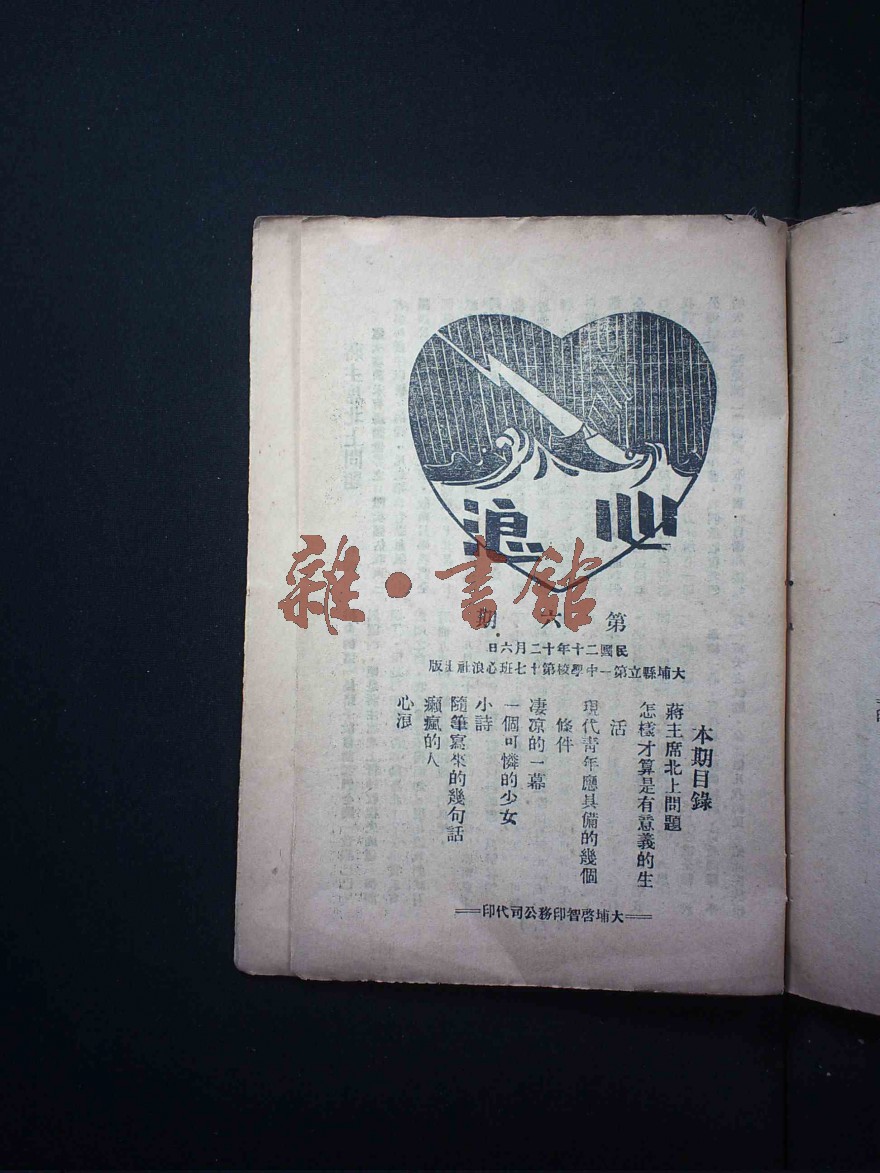 心浪
雜·書館
第六期
民國二十年十二月六日
大埔縣立第一中學校第十七班心浪社出版
本期目錄
蔣主席北上問題
怎樣才算是有意義的生
活
現代青年應具備的幾個
條件
凄凉的一幕
一個可憐的少女
小詩
隨筆寫來的幾句話
癲瘋的人
心浪
大埔啓智印務公司代印